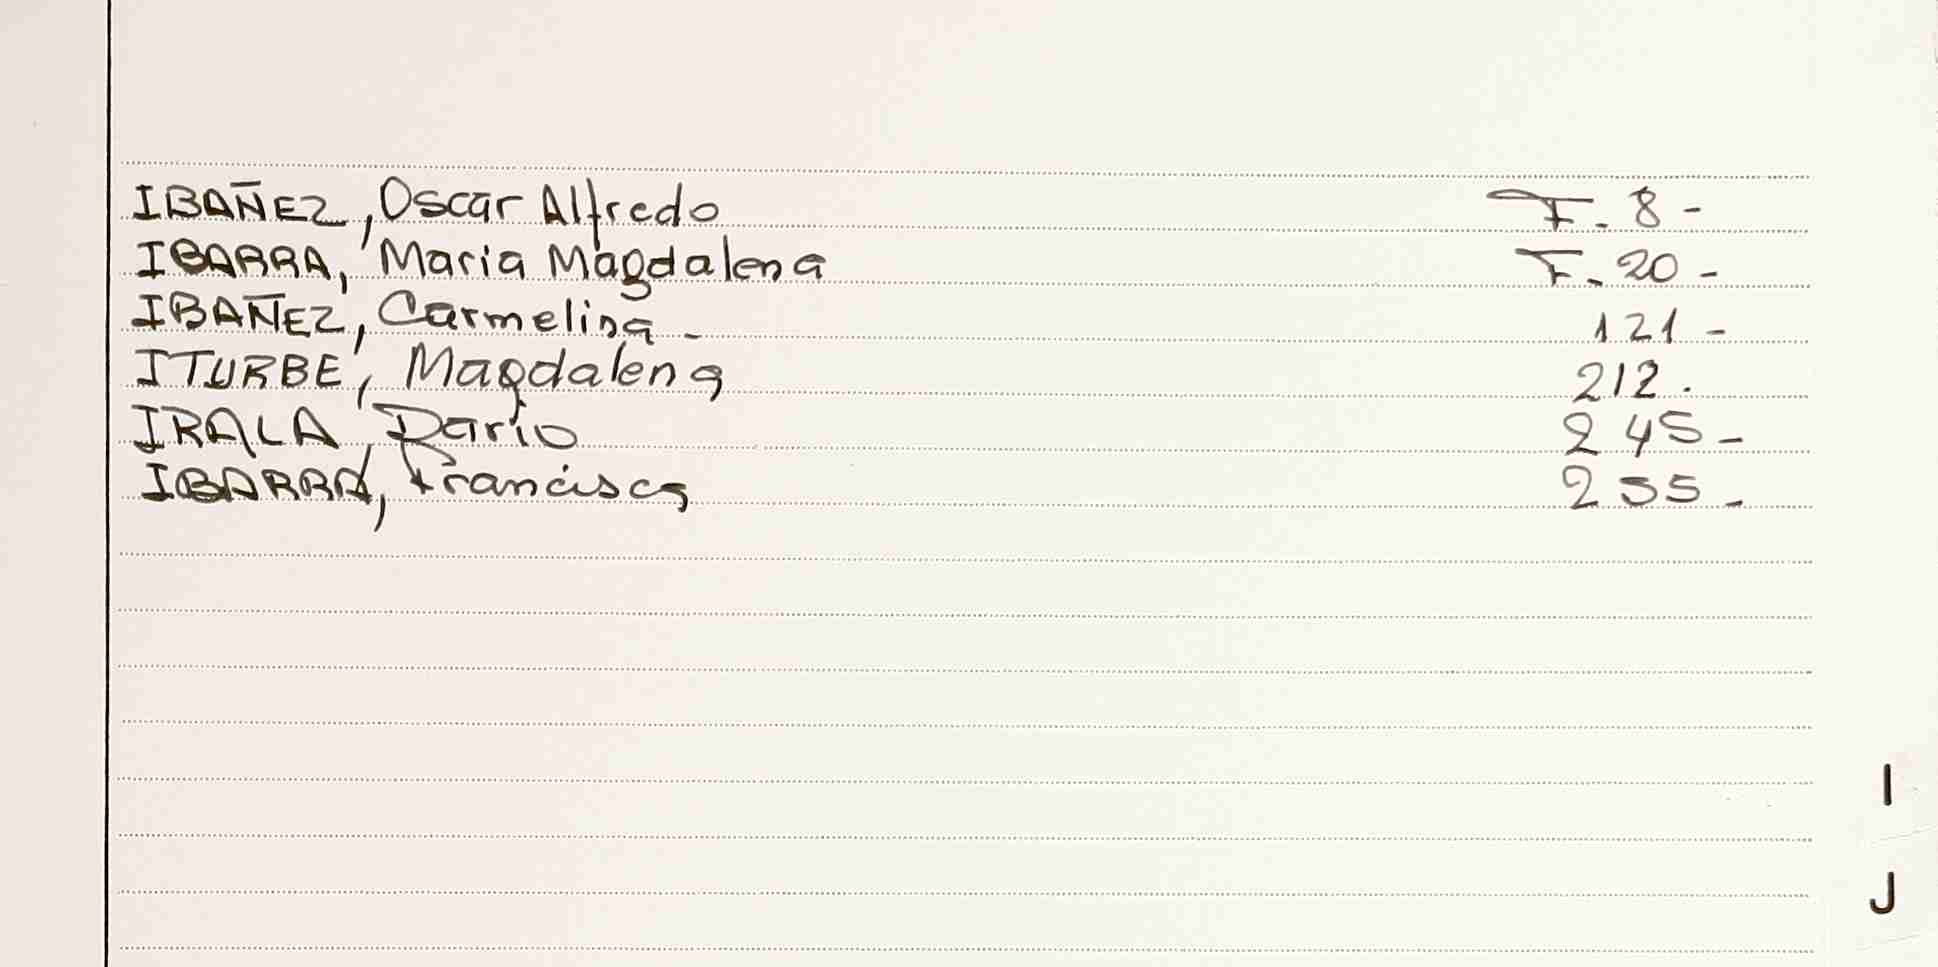 IBAÑEZ, Oscar Alfredo F. 8 -
IBARRA, Maria Magdalena F. 20 -
IBAÑEZ, Carmelina - 121 -
ITURBE, Magdalena 212.
IRALA, Dario 245 -
IBARRA, Francisca 255 -
I
J